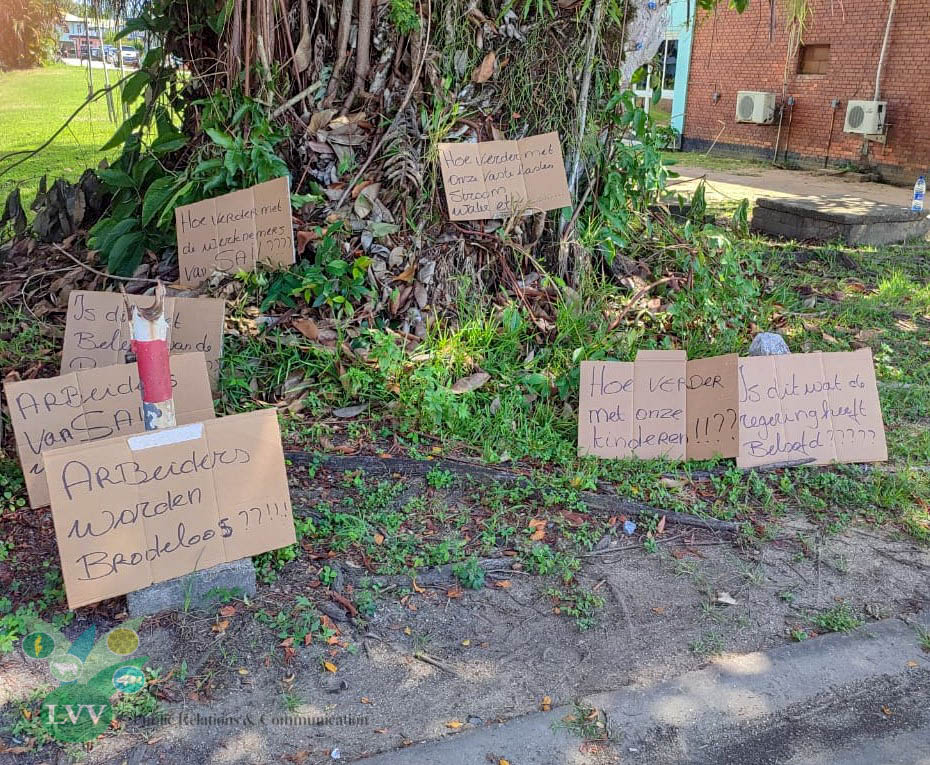 Hoe verder met
onze vaste lasten
Stroom
water etc
Hoe verder met
de werknemers
van SAI ????
Is dit
Belei van de
ARBeiders
van SAI
ARBeiders
worden
Brodeloos ??!!!
Hoe verder
met onze
kinderen !!??
Is dit wat de
regering heeft
Beloofd ?????
LVV
Public Relations & Communication